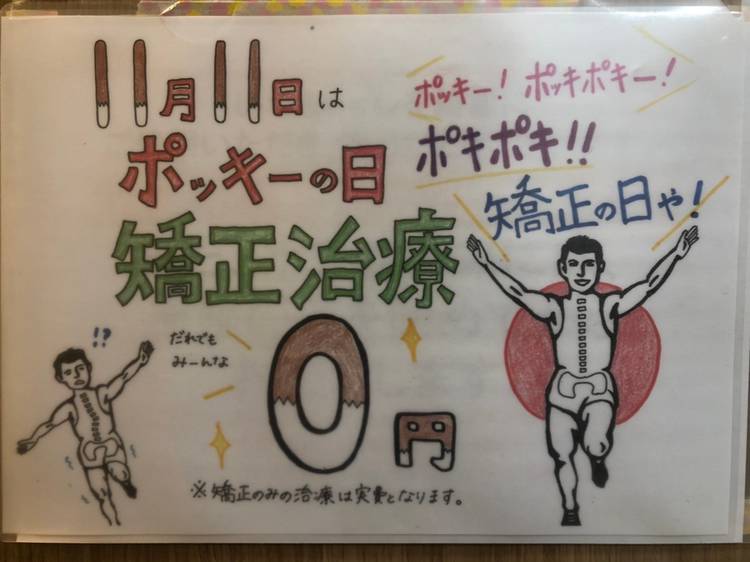 11月11日は
ポッキーの日
矯正治療
0円
だれでも
みーんな
ポッキー! ポッキポキー!
ポキポキ!!
矯正の日や!
!?
※矯正のみの治療は実費となります。